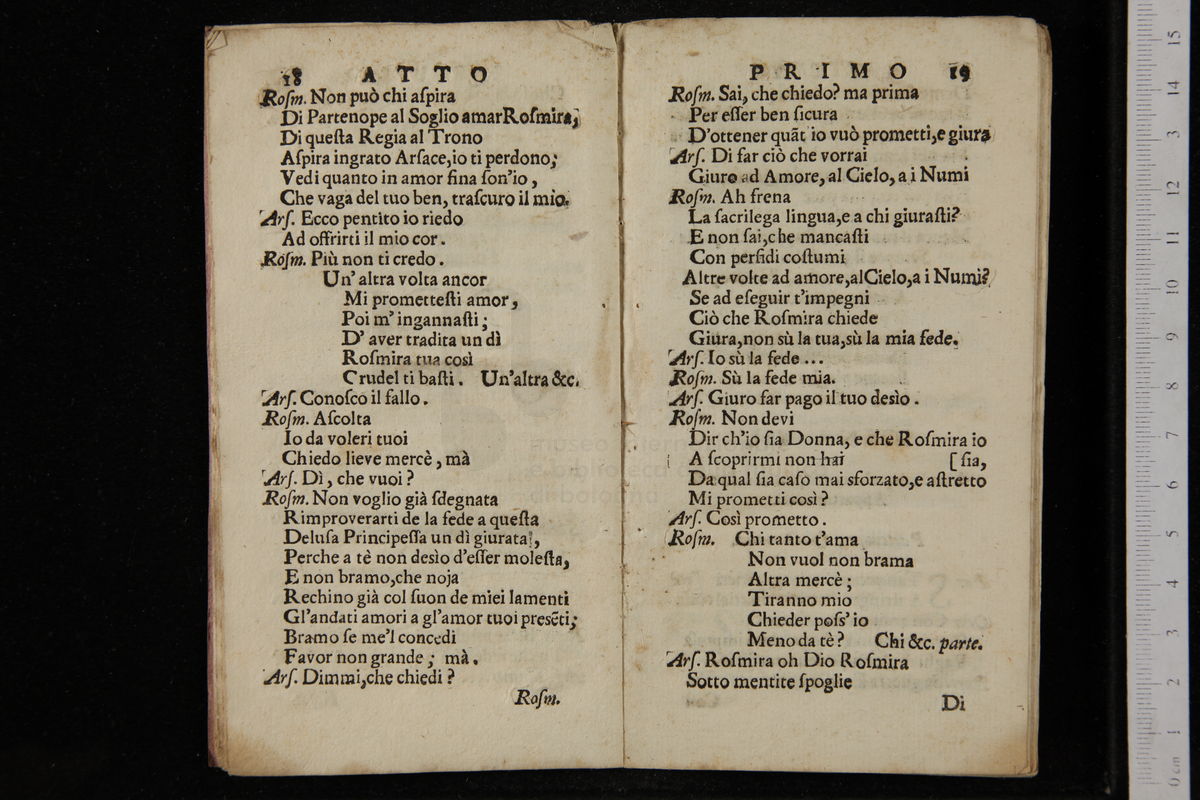 18 ATTO
Roſm. Non può chi aſpira
Di Partenope al Soglio amar Roſmira,
Di queſta Regia al Trono
Aſpira ingrato Arſace,io ti perdono;
Vedi quanto in amor fina ſon'io ,
Che vaga del tuo ben, traſcuro il mio.
Arſ. Ecco pentito io riedo
Ad offrirti il mio cor .
Roſm. Più non ti credo .
Un' altra volta ancor
Mi prometteſti amor ,
Poi m' ingannaſti ;
D' aver tradita un dì
Roſmira tua così
Crudel ti baſti . Un'altra &c.
Arſ. Conoſco il fallo .
Roſm. Aſcolta
Io da voleri tuoi
Chiedo lieve mercè , mà
Arſ. Dì , che vuoi ?
Roſm. Non voglio già ſdegnata
Rimproverarti de la fede a queſta
Deluſa Principeſſa un dì giurata ,
Perche a tè non desìo d'eſſer moleſta,
E non bramo,che noja
Rechino già col ſuon de miei lamenti
Gl'andati amori a gl'amor tuoi preſẽti;
Bramo ſe me'l concedi
Favor non grande ; mà .
Arſ. Dimmi,che chiedi ?
Roſm.
PRIMO 19
Roſm. Sai, che chiedo? ma prima
Per eſſer ben ſicura
D'ottener quãt io vuò prometti,e giura
Arſ. Di far ciò che vorrai
Giuro ad Amore, al Cielo, a i Numi
Roſm. Ah frena
La ſacrilega lingua,e a chi giuraſti?
E non ſai,che mancaſti
Con perfidi coſtumi
Altre volte ad amore,alCielo,a i Numi?
Se ad eſeguir t'impegni
Ciò che Roſmira chiede
Giura,non sù la tua,sù la mia fede.
Arſ. Io sù la fede ...
Roſm. Sù la fede mia.
Arſ. Giuro far pago il tuo desìo .
Roſm. Non devi
Dir ch'io ſia Donna, e che Roſmira io
A ſcoprirmi non hai [ ſia,
Da qual ſia caſo mai sforzato,e aſtretto
Mi prometti così ?
Arſ. Così prometto .
Roſm. Chi tanto t'ama
Non vuol non brama
Altra mercè ;
Tiranno mio
Chieder poſs' io
Meno da tè ? Chi &c. parte.
Arſ. Roſmira oh Dio Roſmira
Sotto mentite ſpoglie
Di